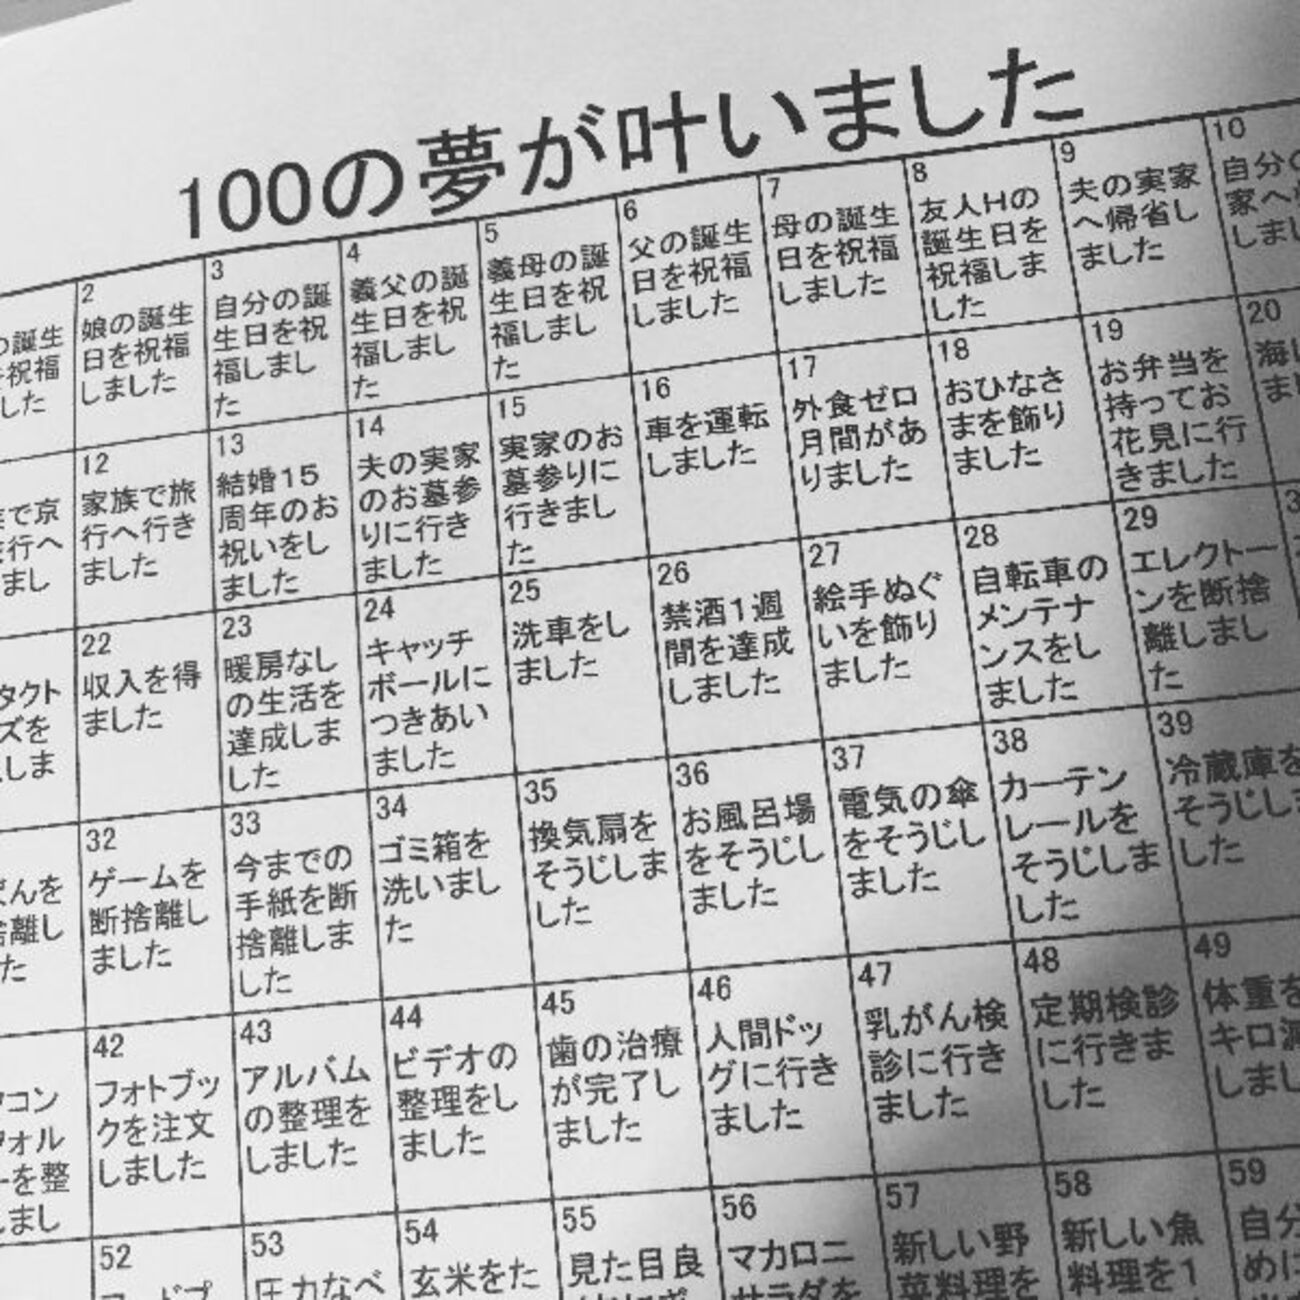 100の夢が叶いました
の誕生
を祝福
した
2
娘の誕生
日を祝福
しました
3
自分の誕
生日を祝
福しまし
た
4
義父の誕
生日を祝
福しまし
た
5
義母の誕
生日を祝
福しまし
た
6
父の誕生
日を祝福
しました
7
母の誕生
日を祝福
しました
8
友人Hの
誕生日を
祝福しま
した
9
夫の実家
へ帰省し
ました
10
自分の
家へ
しまし
で京
行へ
まし
12
家族で旅
行へ行き
ました
13
結婚15
周年のお
祝いをし
ました
14
夫の実家
のお墓参
りに行き
ました
15
実家のお
墓参りに
行きまし
た
16
車を運転
しました
17
外食ゼロ
月間があ
りました
18
おひなさ
まを飾り
ました
19
お弁当を
持ってお
花見に行
きました
20
海
まし
タクト
ズを
しま
22
収入を得
ました
23
暖房なし
の生活を
達成しま
した
24
キャッチ
ボールに
つきあい
ました
25
洗車をし
ました
26
禁酒1週
間を達成
しました
27
絵手ぬぐ
いを飾り
ました
28
自転車の
メンテナ
ンスをし
ました
29
エレクトー
ンを断捨
離しまし
た
んを
捨離し
た
32
ゲームを
断捨離し
ました
33
今までの
手紙を断
捨離しま
した
34
ゴミ箱を
洗いまし
た
35
換気扇を
そうじしま
した
36
お風呂場
をそうじし
ました
37
電気の傘
をそうじし
ました
38
カーテン
レールを
そうじしま
した
39
冷蔵庫を
そうじしま
した
コン
ォル
を整
まし
42
フォトブッ
クを注文
しました
43
アルバム
の整理を
しました
44
ビデオの
整理をし
ました
45
歯の治療
が完了し
ました
46
人間ドッ
グに行き
ました
47
乳がん検
診に行き
ました
48
定期検診
に行きま
した
49
体重を
キロ減
しまし
52
53
圧力なべ
54
玄米をた
55
見た目良
56
マカロニ
サラダを
57
新しい野
菜料理を
58
新しい魚
料理を1
59
自分
めに